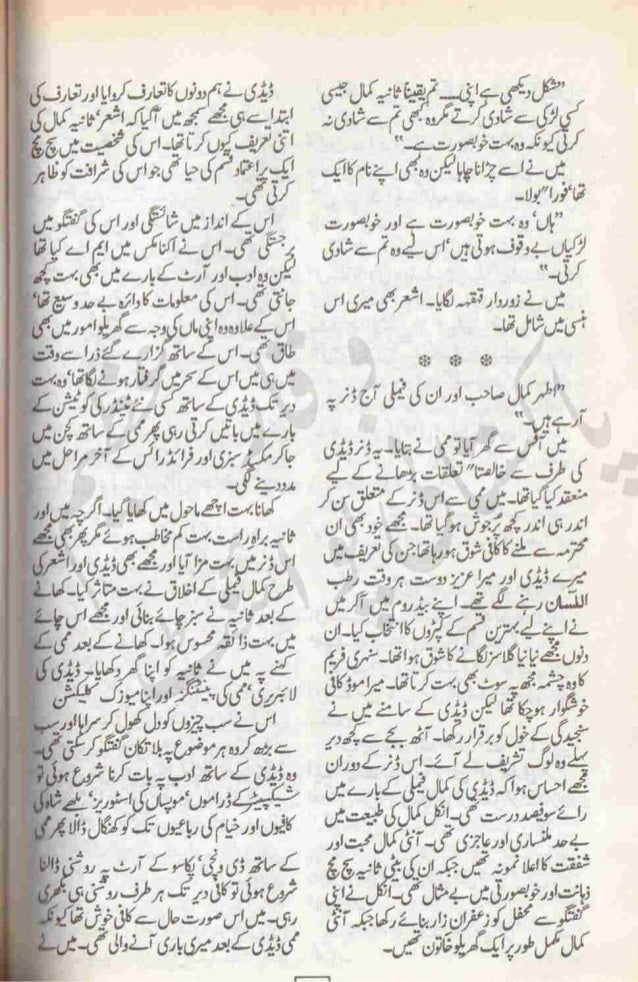 ”شکل دیکھی ہے اپنی۔۔۔۔ تم یقیناً ثانیہ کمال جیسی
کسی لڑکی سے شادی کرتے مگر وہ کبھی تم سے شادی نہ
کرتی کیونکہ وہ بہت خوبصورت ہے۔“
میں نے اسے چڑانا چاہا لیکن وہ بھی اپنے نام کا ایک
تھا‘ فوراً بولا۔
”ہاں‘ وہ بہت خوبصورت ہے اور خوبصورت
لڑکیاں بے وقوف ہوتی ہیں‘ اس لیے وہ تم سے شادی
کرتی۔“
میں نے زور دار قہقہہ لگایا۔ اشعر بھی میری اس
ہنسی میں شامل تھا۔
* * *
”اطہر کمال صاحب اور ان کی فیملی آج ڈنر پہ
آرہے ہیں۔“
میں آفس سے گھر آیا تو ممی نے بتایا۔ یہ ڈنر ڈیڈی
کی طرف سے خالصتاً تعلقات بڑھانے کے لیے
منعقد کیا گیا تھا۔ میں ممی سے اس ڈنر کے متعلق سن کر
اندر ہی اندر کچھ پُرجوش ہوگیا تھا۔ مجھے خود بھی ان
محترمہ سے ملنے کا کافی شوق ہو رہا تھا جن کی تعریف میں
میرے ڈیڈی اور میرا عزیز دوست ہر وقت رطب
اللسان رہنے لگے تھے۔ اپنے بیڈ روم میں آکر میں
نے اپنے لیے بہترین قسم کے کپڑوں کا انتخاب کیا۔ ان
دنوں مجھے نیا نیا گلاسز لگانے کا شوق ہوا تھا۔ سنہری فریم
کا وہ چشمہ مجھ پہ سوٹ بھی بہت کرتا تھا۔ میرا موڈ کافی
خوشگوار ہوچکا تھا لیکن ڈیڈی کے سامنے میں نے
سنجیدگی کے خول کو برقرار رکھا۔ آٹھ بجے سے کچھ دیر
پہلے وہ لوگ تشریف لے آئے۔ اس ڈنر کے دوران
مجھے احساس ہوا کہ ڈیڈی کی کمال فیملی کے بارے میں
رائے سوفیصد درست تھی۔ انکل کمال کی طبیعت میں
بے حد ملنساری اور عاجزی تھی۔ آنٹی کمال محبت اور
شفقت کا اعلا نمونہ تھیں جبکہ ان کی بیٹی ثانیہ سچ مچ
ذہانت اور خوبصورتی میں بے مثال تھی۔ انکل نے اپنی
گفتگو سے محفل کو زعفران زار بنائے رکھا جبکہ آنٹی
کمال مکمل طور پر ایک گھریلو خاتون تھیں۔
ڈیڈی نے ہم دونوں کا تعارف کروایا اور تعارف کی
ابتدا سے ہی مجھے سمجھ میں آگیا کہ اشعر‘ ثانیہ کمال کی
اتنی تعریف کیوں کرتا تھا۔ اس کی شخصیت میں سچ مچ
ایک پر اعتماد قسم کی حیا تھی جو اس کی شرافت کو ظاہر
کرتی تھی۔
اس کے انداز میں شائستگی اور اس کی گفتگو میں
برجستگی تھی۔ اس نے اکنامکس میں ایم اے کیا تھا
لیکن وہ ادب اور آرٹ کے بارے میں بھی بہت کچھ
جانتی تھی۔ اس کی معلومات کا دائرہ بے حد وسیع تھا‘
اس کے علاوہ وہ اپنی ماں کی وجہ سے گھریلو امور میں بھی
طاق تھی۔ اس کے ساتھ گزارے گئے ذرا سے وقت
میں ہی میں اس کے سحر میں گرفتار ہونے لگا تھا‘ وہ بہت
دیر تک ڈیڈی کے ساتھ کسی نئے ٹینڈر کی کوٹیشن کے
بارے میں باتیں کرتی رہی پھر ممی کے ساتھ کچن میں
جاکر مکسڈ سبزی اور فرائیڈ رائس کے آخر مراحل میں
مدد دینے لگی۔
کھانا بہت اچھے ماحول میں کھایا گیا۔ اگرچہ میں اور
ثانیہ براہ راست بہت کم مخاطب ہوئے مگر پھر بھی مجھے
اس ڈنر میں بہت مزا آیا اور مجھے بھی ڈیڈی اور اشعر کی
طرح کمال فیملی کے اخلاق نے بہت متاثر کیا۔ کھانے
کے بعد ثانیہ نے سبز چائے بنائی اور مجھے اس چائے
میں بہت ذائقہ محسوس ہوا۔ کھانے کے بعد ممی کے
کہنے پہ میں نے ثانیہ کو اپنا گھر دکھایا۔ ڈیڈی کی
لائبریری‘ ممی کی پینٹنگز اور اپنا میوزک کلیکشن
اس نے سب چیزوں کو دل کھول کر سراہا اور سب
سے بڑھ کر وہ ہر موضوع پہ بلا تکان گفتگو کر سکتی تھی۔
وہ ڈیڈی کے ساتھ ادب پہ بات کرنا شروع ہوئی تو
شیکسپیئر کے ڈراموں‘ موپساں کی اسٹوریز‘ بلھے شاہ کی
کافیوں اور خیام کی رباعیوں تک کو کھنگال ڈالا پھر ممی
کے ساتھ ڈی ونچی‘ پکاسو کے آرٹ پہ روشنی ڈالنا
شروع ہوئی تو کافی دیر تک ہر طرف روشنی ہی بکھری
رہی۔ میں اس صورت حال سے کافی خوش تھا کیونکہ
ممی ڈیڈی کے بعد میری باری آنے والی تھی۔ میں نے